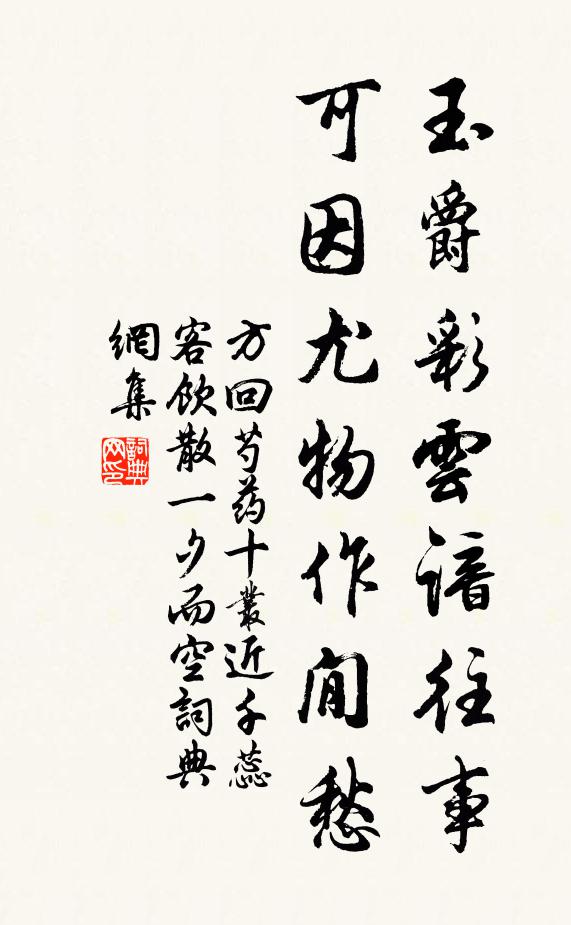 玉爵彩雲諳往事
可因尤物作閒愁
方回芍药十叢近千蕊
客飲散一夕而空詞典
網集
詞典
网印